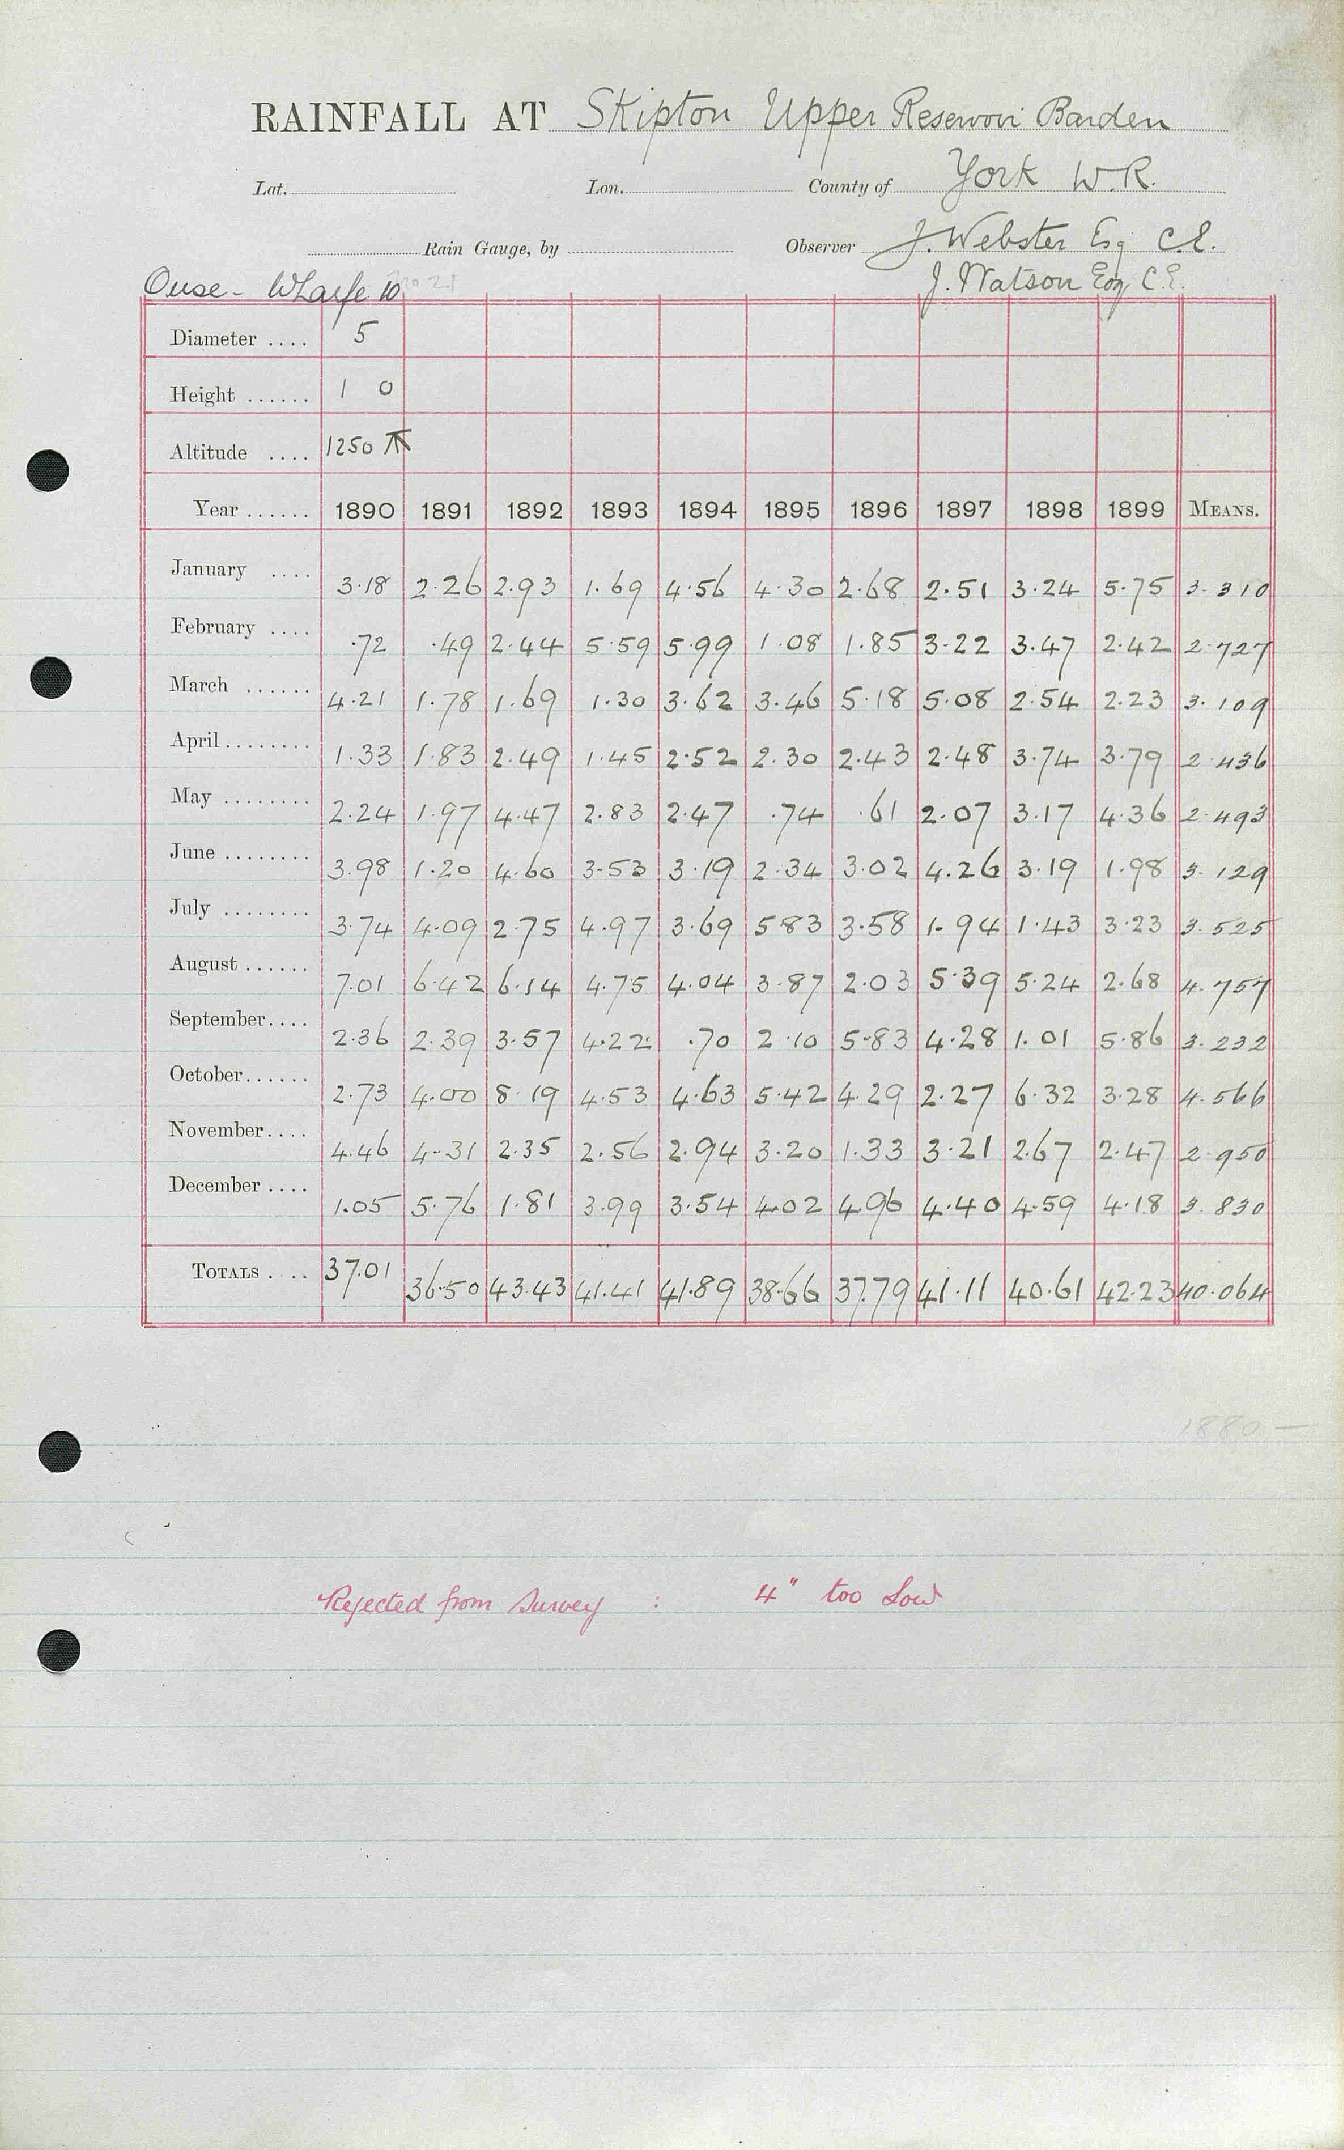 RAINFALL AT Skipton Upper Reservoir Barden
Lat. Lon. County of York W.R.
Rain Gauge, by Observer J. Webster Esq C.E.
Ouse - Wharfe 10 J. Watson Esq C.E.
Diameter .... 5
Height ...... 1 0
Altitude .... 1250
Year ...... 1890 1891 1892 1893 1894 1895 1896 1897 1898 1899 MEANS.
January .... 3.18 2.26 2.93 1.69 4.56 4.30 2.68 2.51 3.24 5.75 3.310
February .... .72 .49 2.44 5.59 5.99 1.08 1.85 3.22 3.47 2.42 2.727
March ...... 4.21 1.78 1.69 1.30 3.62 3.46 5.18 5.08 2.54 2.23 3.109
April ........ 1.33 1.83 2.49 1.45 2.52 2.30 2.43 2.48 3.74 3.79 2.436
May ........ 2.24 1.97 4.47 2.83 2.47 .74 .61 2.07 3.17 4.36 2.493
June ........ 3.98 1.20 4.60 3.53 3.19 2.34 3.02 4.26 3.19 1.98 3.129
July ........ 3.74 4.09 2.75 4.97 3.69 5.83 3.58 1.94 1.43 3.23 3.525
August ...... 7.01 6.42 6.14 4.75 4.04 3.87 2.03 5.39 5.24 2.68 4.757
September.... 2.36 2.39 3.57 4.22 .70 2.10 5.83 4.28 1.01 5.86 3.232
October...... 2.73 4.00 8.19 4.53 4.63 5.42 4.29 2.27 6.32 3.28 4.566
November.... 4.46 4.31 2.35 2.56 2.94 3.20 1.33 3.21 2.67 2.47 2.950
December .... 1.05 5.76 1.81 3.99 3.54 4.02 4.96 4.40 4.59 4.18 3.830
TOTALS .... 37.01 36.50 43.43 41.41 41.89 38.66 37.79 41.11 40.61 42.23 40.064
1880 —
Rejected from Survey : 4" too Low